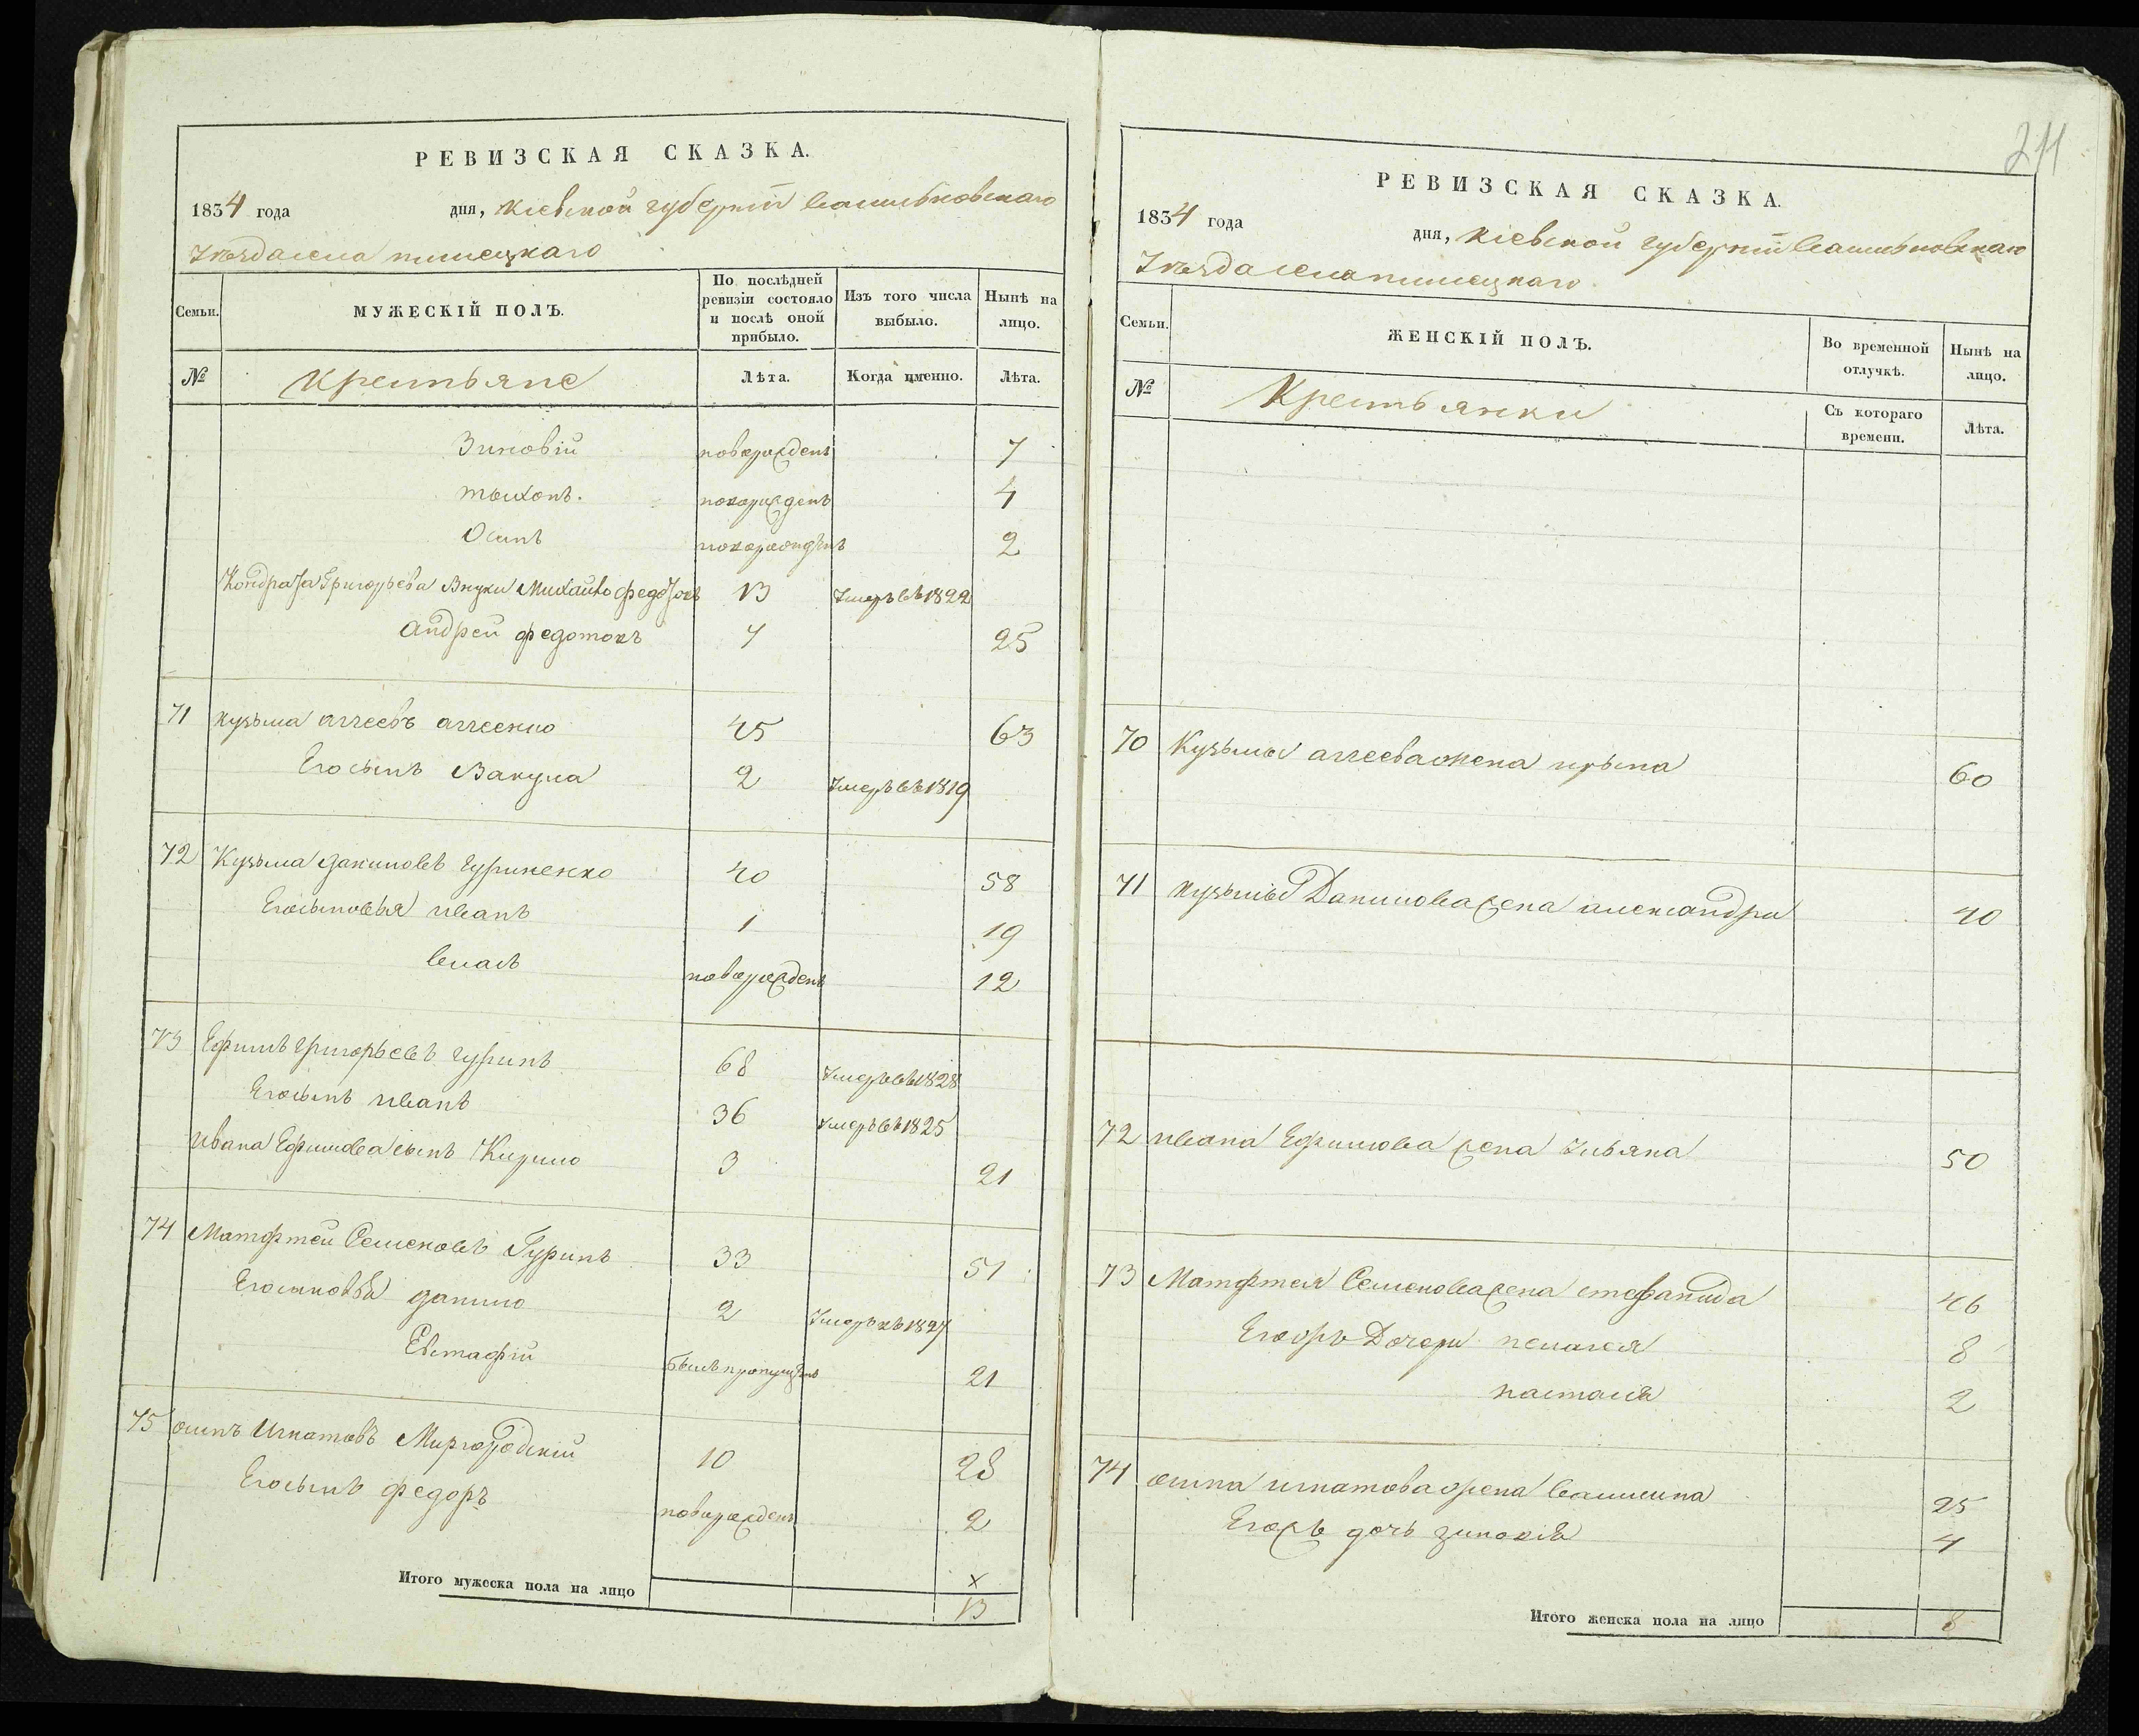 РЕВИЗСКАЯ СКАЗКА.
1834 года дня, Кіевской губерніи Васильковскаго
Уезда села
Семьи.
МУЖЕСКІЙ ПОЛЪ.
По послѣдней ревизіи состояло и послѣ оной прибыло.
Изъ того числа выбыло.
Нынѣ на лицо.
№ Крестьяне Лѣта. Когда именно. Лѣта.
Зиновій новорожденъ 7
тыхонъ. новорожденъ 4
Осипъ новорожденъ 2
Кондрата Григорьева Внуки Михайло федотовъ 13 Умеръ въ 1822
Андрей федотовъ 7 25
71 кузьма аггеевъ аггеенко 45 63
Его сынъ Вакула 2 Умеръ въ 1819
72 Кузьма даниловъ гуриненко 40 58
Его сыновья иванъ 1 19
власъ новорожденъ 12
73 Ефимъ григорьевъ гуринъ 68 Умеръ въ 1828
Его сынъ иванъ 36 умеръ въ 1825
ивана Ефимова сынъ Кирило 3 21
74 Матфтей Семеновъ Гуринъ 33 51
Его сыновья данило 2 Умеръ въ 1827
Евстафій былъ пропущенъ 21
75 осипъ Игнатовъ Миргородскій 10 28
Его сынъ федоръ новорожденъ 2
Итого мужеска пола на лицо x
13
211
РЕВИЗСКАЯ СКАЗКА.
1834 года дня, Кіевской губерніи Васильковскаго
Уезда села
Семьи.
ЖЕНСКІЙ ПОЛЪ.
Во временной отлучкѣ.
Нынѣ на лицо.
№ Крестьянки Съ котораго времени. Лѣта.
70 Кузьмы аггеева жена ирына 60
71 кузьмы Данилова жена александра 40
72 ивана Ефимова жена Ульяна 50
73 Матфтея Семенова жена стефанида 46
Его дочери пелагея 8
настасія 2
74 осипа игнатова жена василина 25
Его дочь зиновія 4
Итого женска пола на лицо 8